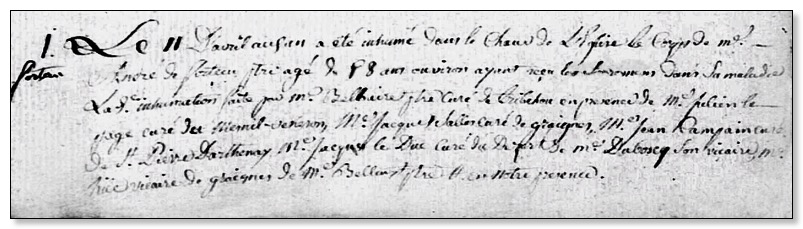 1. Le 11 D'avril audit an a été inhumé dans le Chœur de L'Eglise le Corps de mr.
André de ptre agé de 58 ans environ ayant reçu les Sacremens dans Sa maladie
La de. inhumation faite par Mr. ptre curé de Tribehou en presence de Mr. Julien le
page curé du Mesnil-veneron, Mr. Jacque curé de graignes, Mr. Jean Campain curé
de St. Pierre Darthenay Mr. Jacque le Duc curé du Dezert de mr. Dubosq Son vicaire, mr.
vicaire de graignes de Mr. ptre en notre presence.